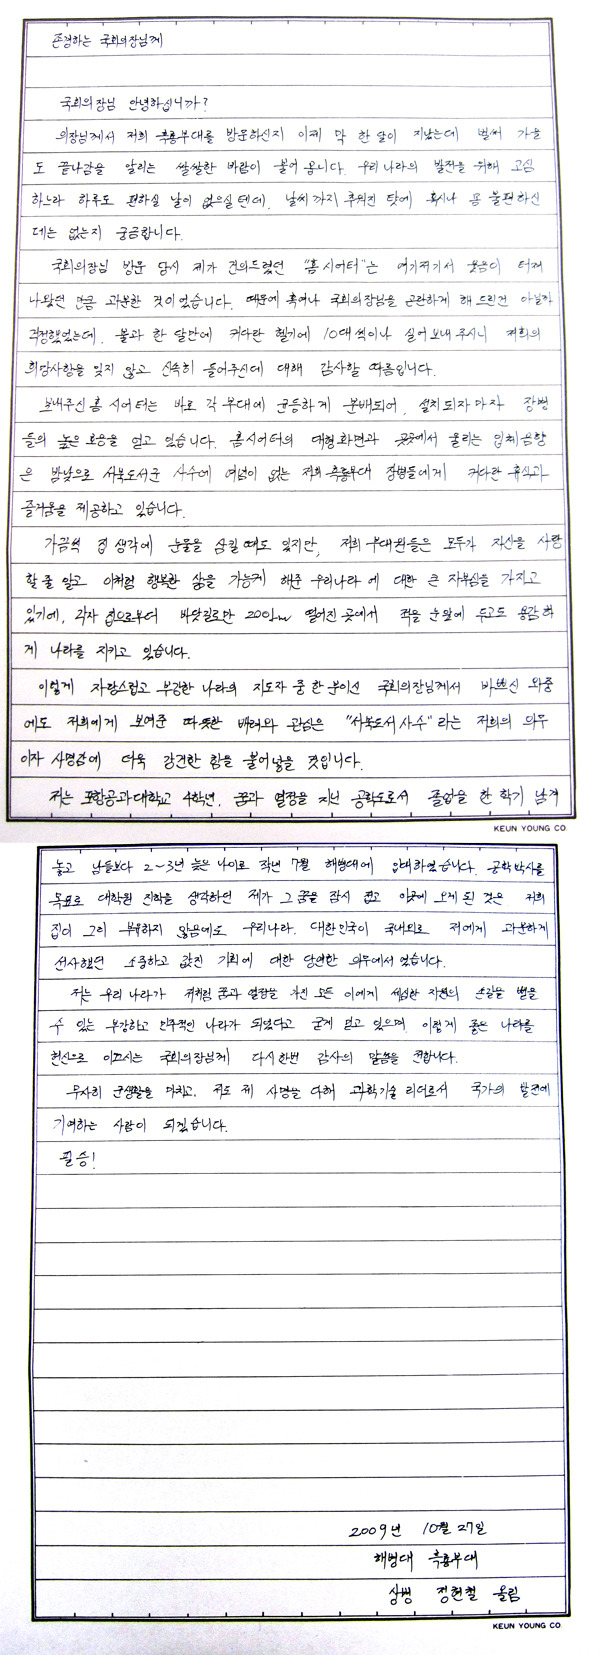 존경하는 국회의장님께
국회의장님 안녕하십니까?
의장님께서 저희 흑룡부대를 방문하신지 이제 막 한 달이 지났는데 벌써 가을
도 끝나감을 알리는 쌀쌀한 바람이 불어 옵니다. 우리나라의 발전을 위해 고심
하느라 하루도 편하실 날이 없으실텐데, 날씨까지 추워진 탓에 혹시나 몸 불편하신
데는 없는지 궁금합니다.
국회의장님 방문 당시 제가 건의드렸던 "홈시어터"는 여기저기서 웃음이 터져
나왔던 만큼 과분한 것이었습니다. 때문에 혹여나 국회의장님을 곤란하게 해 드린건 아닐까
걱정했었는데, 불과 한 달만에 커다란 헬기에 10대씩이나 실어보내 주시니 저희의
희망사항을 잊지 않고 신속히 들어주신데 대해 감사할 따름입니다.
보내주신 홈 시어터는 바로 각 부대에 균등하게 분배되어, 설치되자마자 장병
들의 높은 호응을 얻고 있습니다. 홈시어터의 대형화면과 곳곳에서 울리는 입체음향
은 밤낮으로 서북도서군 사수에 여념이 없는 저희 흑룡부대 장병들에게 커다란 휴식과
즐거움을 제공하고 있습니다.
가끔씩 집 생각에 눈물을 삼킬 때도 있지만, 저희 부대원들은 모두가 자신을 사랑
할 줄 알고 이처럼 행복한 삶을 가능케 해준 우리나라에 대한 큰 자부심을 가지고
있기에, 각자 집으로부터 바닷길로만 200입㎞ 떨어진 곳에서 적을 눈앞에 두고도 용감하
게 나라를 지키고 있습니다.
이렇게 자랑스럽고 부강한 나라의 지도자 중 한 분이신 국회의장님께서 바쁘신 와중
에도 저희에게 보여준 따뜻한 배려와 관심은 "서북도서사수"라는 저희의 의무
이자 사명감에 더욱 강건한 힘을 불어넣을 것입니다.
저는 포항공과대학교 4학년. 꿈과 열정을 지닌 공학도로서 졸업을 한 학기 남겨
KEUN YOUNG CO
놓고 남들보다 2~3년 늦은 나이로 작년 7월 해병대에 입대하였습니다. 공학박사를
목표로 대학원 진학을 생각하던 제가 그 꿈을 잠시 접고 이곳에 오게 된 것은 저희
집이 그리 부유하지 않음에도 우리나라. 대한민국이 국내외로 저에게 과분하게
선사했던 소중하고 값진 기회에 대한 당연한 의무에서 였습니다.
저는 우리 나라가 저처럼 꿈과 열정을 가진 모든 이에게 세심한 지원의 손길을 뻗을
수 있는 부강하고 민주적인 나라가 되었다고 굳게 믿고 있으며, 이렇게 좋은 나라를
헌신으로 이끄시는 국회의장님께 다시한번 감사의 말씀을 전합니다.
무사히 군생활을 마치고, 저도 제 사명을 다해 과학기술 리더로서 국가의 발전에
기여하는 사람이 되겠습니다.
필승!
2009년 10월 27일
해병대 흑룡부대
상병 정현철 올림
KEUN YOUNG CO